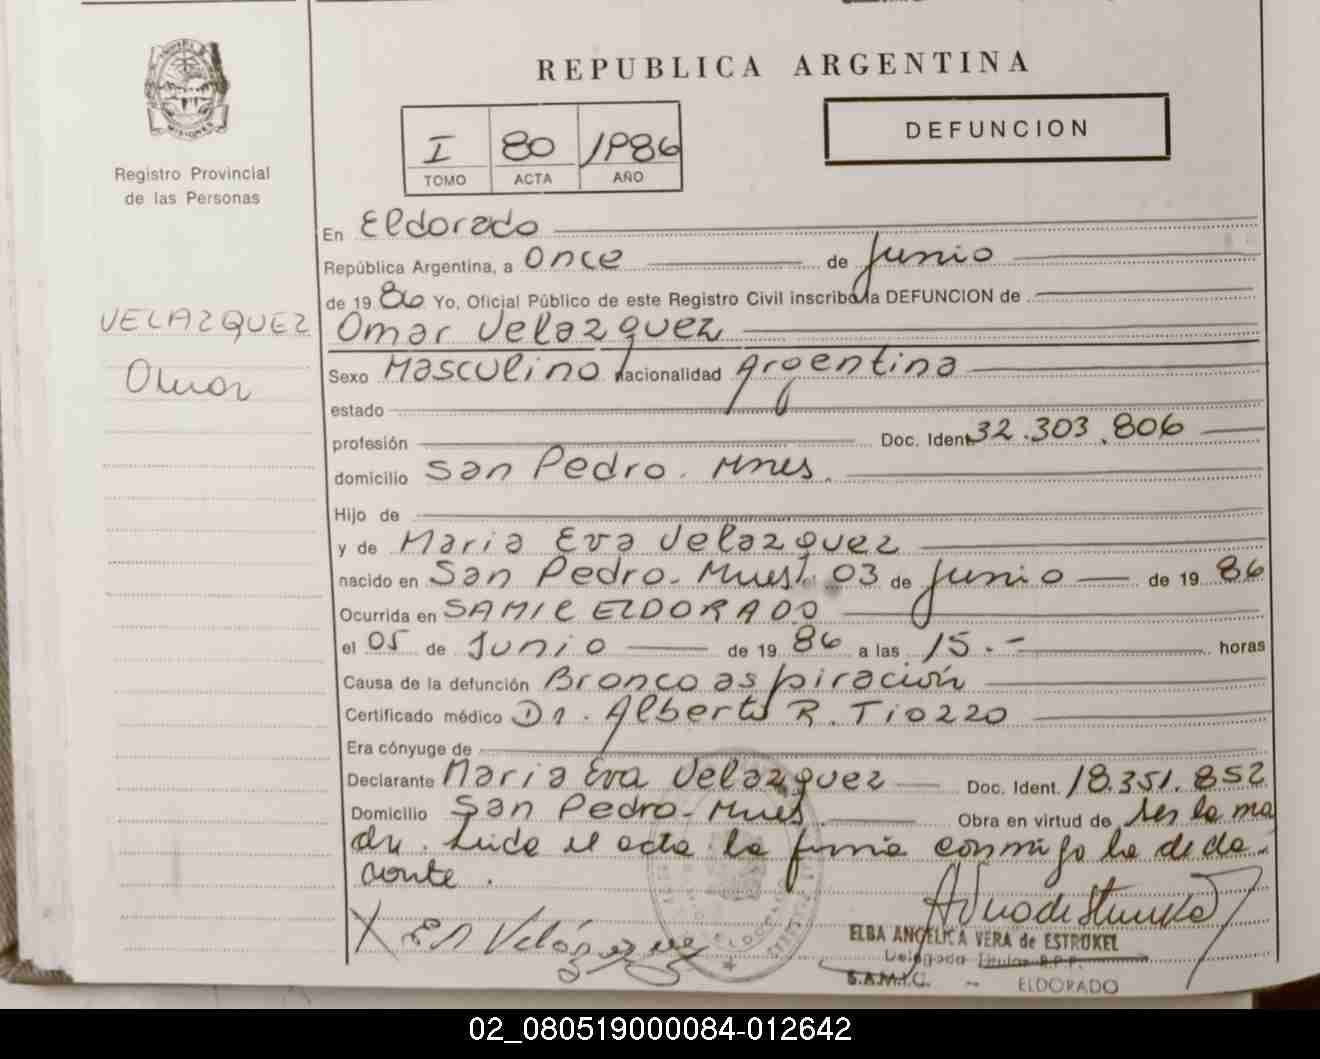 REPUBLICA ARGENTINA
MISIONES
Registro Provincial
de las Personas
VELAZQUEZ
Omar
I 80 1986
TOMO ACTA AÑO
DEFUNCION
En Eldorado
República Argentina, a Once de Junio
de 19 86 Yo, Oficial Público de este Registro Civil inscribo la DEFUNCION de
Omar Velazquez
Sexo Masculino Nacionalidad Argentina
estado
profesión Doc. Ident. 32.303.806
domicilio San Pedro. Mnes.
Hijo de
y de Maria Eva Velazquez
nacido en San Pedro - Mnes el 03 de Junio de 19 86
Ocurrida en SAMIC ELDORADO
el 05 de Junio de 19 86 a las 15.- horas
Causa de la defunción Bronco aspiración
Certificado médico Dr. Alberto R. Tiozzo
Era cónyuge de
Declarante Maria Eva Velazquez Doc. Ident. 18.351.852
Domicilio San Pedro - Mnes. Obra en virtud de ser la ma
dre. Leida el acta la firma conmigo la decla-
rante.
X Velázquez
ELBA ANGELICA VERA de ESTRUKEL
Delegada Titular R.P.P.
S.A.M.I.C. - ELDORADO
02_080519000084-012642